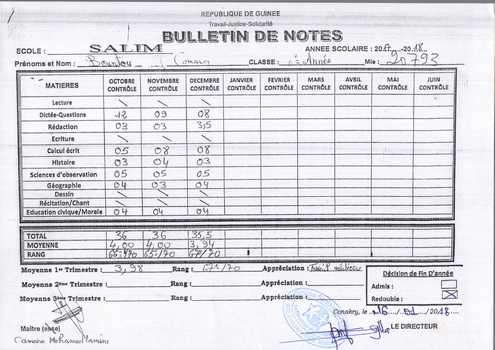 REPUBLIQUE DE GUINEE
Travail-Justice-Solidarité
BULLETIN DE NOTES
ECOLE : SALIM ANNEE SCOLAIRE : 2017...-2018.
Prénoms et Nom : Bountou Camara CLASSE : Année Mle : 20793
MATIERES OCTOBRE CONTRÔLE NOVEMBRE CONTRÔLE DECEMBRE CONTRÔLE JANVIER CONTRÔLE FEVRIER CONTRÔLE MARS CONTRÔLE AVRIL CONTRÔLE MAI CONTRÔLE JUIN CONTRÔLE
Lecture \ \ \
Dictée-Questions 12 09 08
Rédaction 03 03 3,5
Ecriture \ \ \
Calcul écrit 05 08 08
Histoire 03 04 03
Sciences d'observation 05 05 05
Géographie 04 03 04
Dessin \ \ \
Récitation/Chant \ \ \
Education civique/Morale 04 04 04
TOTAL 36 36 35,5
MOYENNE 4,00 4,00 3,94
RANG 66e/70 65e/70 67/70
Moyenne 1er Trimestre : 3,98 Rang : 67e/70 Appréciation :
Moyenne 2ème Trimestre : Rang : Appréciation :
Moyenne 3ème Trimestre : Rang : Appréciation :
Décision de Fin D'année
Admis :
Redouble :
Conakry, le 16 /01 /2018
Maître (esse) LE DIRECTEUR
Camara Mohamed